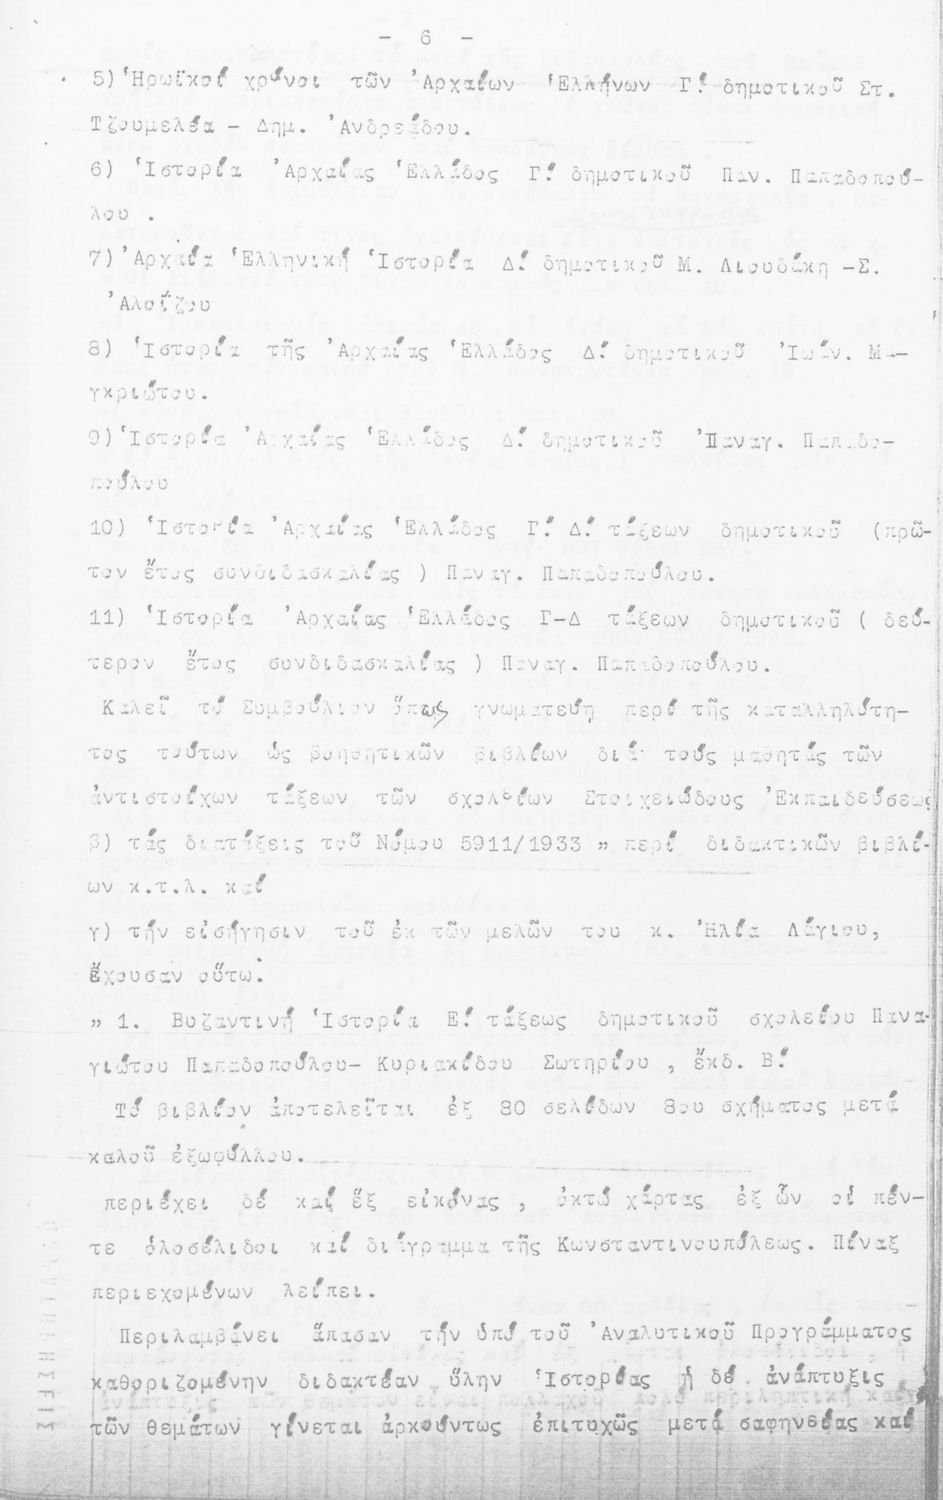 - 6 -
5) Ἡρωϊκοί χρόνοι τῶν Ἀρχαίων Ἑλλήνων Γ! δημοτικοῦ Στ.
Τζουμελέα - Δημ. Ἀνδρεάδου.
6) Ἱστορία Ἀρχαίας Ἑλλάδος Γ! δημοτικοῦ Παν. Παπαδοπού-
λου .
7) Ἀρχαία Ἑλληνική Ἱστορία Δ! δημοτικοῦ Μ. Λιουδάκη -Σ.
Ἀλοΐζου
8) Ἱστορία τῆς Ἀρχαίας Ἑλλάδος Δ! δημοτικοῦ Ἰωάν. Μα-
γκριώτου.
9) Ἱστορία Ἀρχαίας Ἑλλάδος Δ! δημοτικοῦ Παναγ. Παπαδο-
πούλου
10) Ἱστορία Ἀρχαίας Ἑλλάδος Γ! Δ! τάξεων δημοτικοῦ (πρῶ-
τον ἔτος συνδιδασκαλίας ) Παναγ. Παπαδοπούλου.
11) Ἱστορία Ἀρχαίας Ἑλλάδος Γ-Δ τάξεων δημοτικοῦ ( δεύ-
τερον ἔτος συνδιδασκαλίας ) Παναγ. Παπαδοπούλου.
Καλεῖ τό Συμβούλιον ὅπως γνωματεύη περί τῆς καταλληλότη-
τος τούτων ὡς βοηθητικῶν βιβλίων διά τούς μαθητάς τῶν
ἀντιστοίχων τάξεων τῶν σχολείων Στοιχειώδους Ἐκπαιδεύσεως
β) τάς διατάξεις τοῦ Νόμου 5911/1933 " περί διδακτικῶν βιβλί-
ων κ.τ.λ. καί
γ) τήν εἰσήγησιν τοῦ ἐκ τῶν μελῶν του κ. Ἠλία Λάγιου,
ἔχουσαν οὕτω.
" 1. Βυζαντινή Ἱστορία Ε! τάξεως δημοτικοῦ σχολείου Πανα-
γιώτου Παπαδοπούλου- Κυριακίδου Σωτηρίου , ἔκδ. Β!
Τό βιβλίον ἀποτελεῖται ἐξ 80 σελίδων 8ου σχήματος μετά
καλοῦ ἐξωφύλλου.
περιέχει δέ καί ἕξ εἰκόνας , ὀκτώ χάρτας ἐξ ὧν οἱ πέν-
τε ὁλοσέλιδοι καί διάγραμμα τῆς Κωνσταντινουπόλεως. Πίναξ
περιεχομένων λείπει.
Περιλαμβάνει ἅπασαν τήν ὑπό τοῦ Ἀναλυτικοῦ Προγράμματος
καθοριζομένην διδακτέαν ὕλην Ἱστορίας ἡ δέ ἀνάπτυξις
τῶν θεμάτων γίνεται ἀρκούντως ἐπιτυχῶς μετά σαφηνείας καί